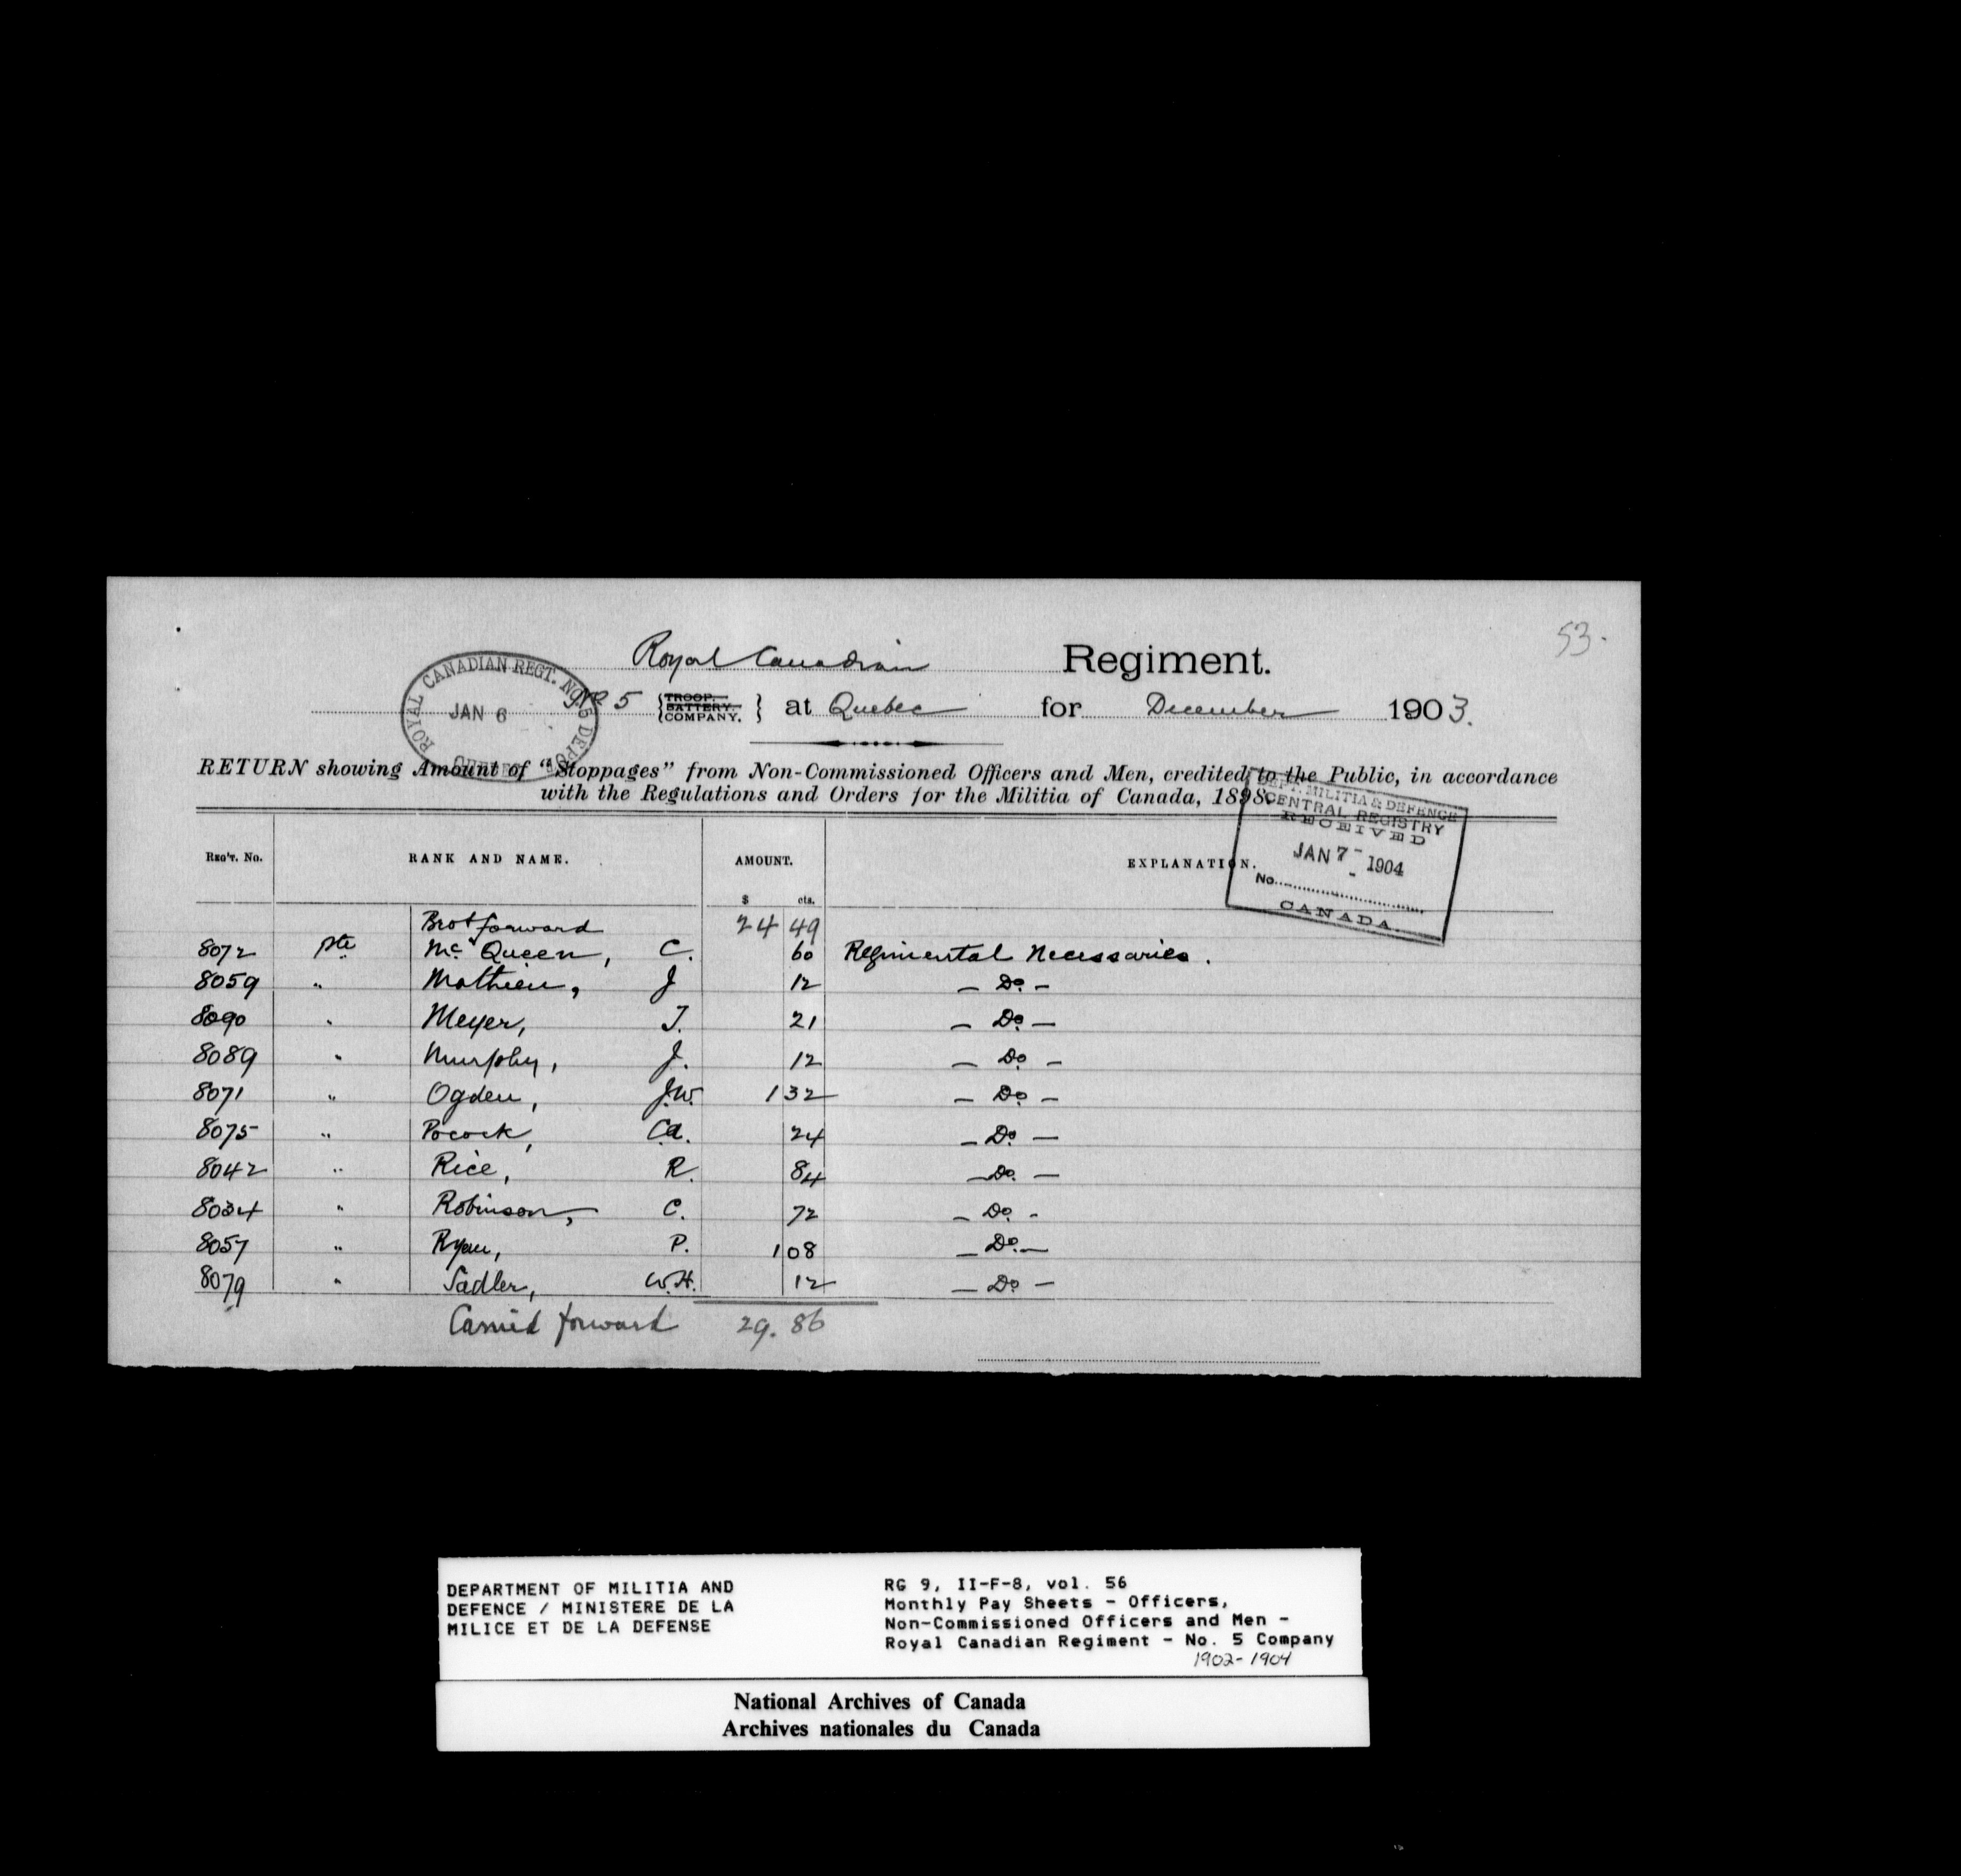 53.
Royal Canadian Regiment.
ROYAL CANADIAN REGT. NO. 5 DEPOT
JAN 6
QUEBEC
No 5 {TROOP. BATTERY. COMPANY.} at Quebec for December 1903.
RETURN showing Amount of "Stoppages" from Non-Commissioned Officers and Men, credited to the Public, in accordance
with the Regulations and Orders for the Militia of Canada, 1898.
DEPT. MILITIA & DEFENCE
CENTRAL REGISTRY
RECEIVED
JAN 7 - 1904
No.
CANADA.
REG'T. No. RANK AND NAME. AMOUNT. EXPLANATION.
$ cts.
Brot forward 24 49
8072 Pte Mc Queen, C. 60 Regimental Necessaries.
8059 " Mathieu, J 12 — Do. —
8090 " Meyer, J. 21 — Do —
8089 " Murphy, J. 12 — Do —
8071 " Ogden, J.W. 1 32 — Do —
8075 " Pocock, C.A. 24 — Do. —
8042 " Rice, R. 84 — Do. —
8034 " Robinson, C. 72 — Do. -
8057 " Ryan, P. 1 08 — Do. —
8079 " Sadler, W.H. 12 — Do —
Carried forward 29. 86
DEPARTMENT OF MILITIA AND
DEFENCE / MINISTERE DE LA
MILICE ET DE LA DEFENSE
RG 9, II-F-8, vol. 56
Monthly Pay Sheets - Officers,
Non-Commissioned Officers and Men -
Royal Canadian Regiment - No. 5 Company
1902-1904
National Archives of Canada
Archives nationales du Canada